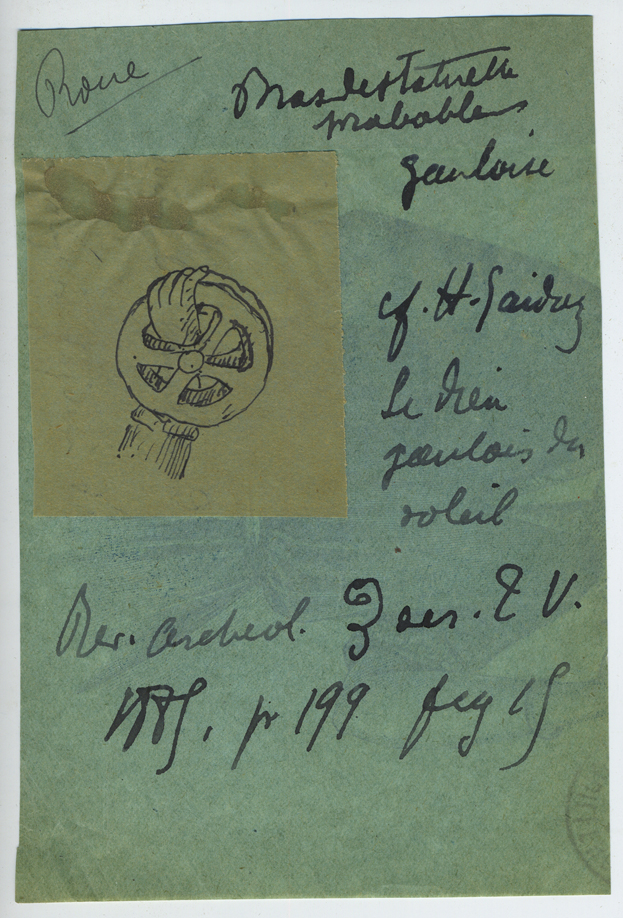 Roue
Bras de statuette
probablem
gauloise
cf. H. Gaidoz
Le dieu
gaulois du
soleil
Rev. archeol. 3 ser. T V.
1885, p 199 fig 15